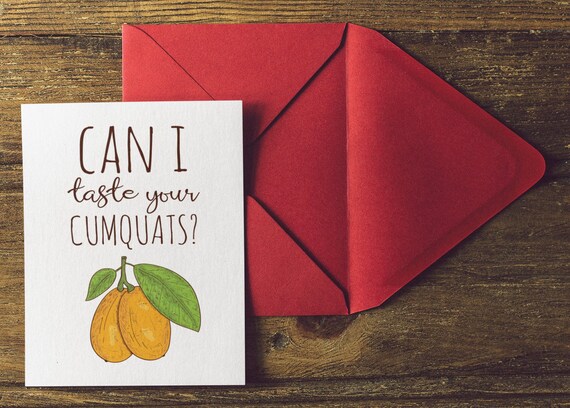 CAN I
taste your
CUMQUATS?